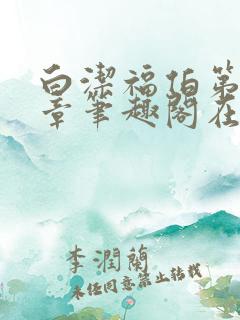 白洁福伯第
章笔趣阁在
李潤蘭
未经同意禁止转载